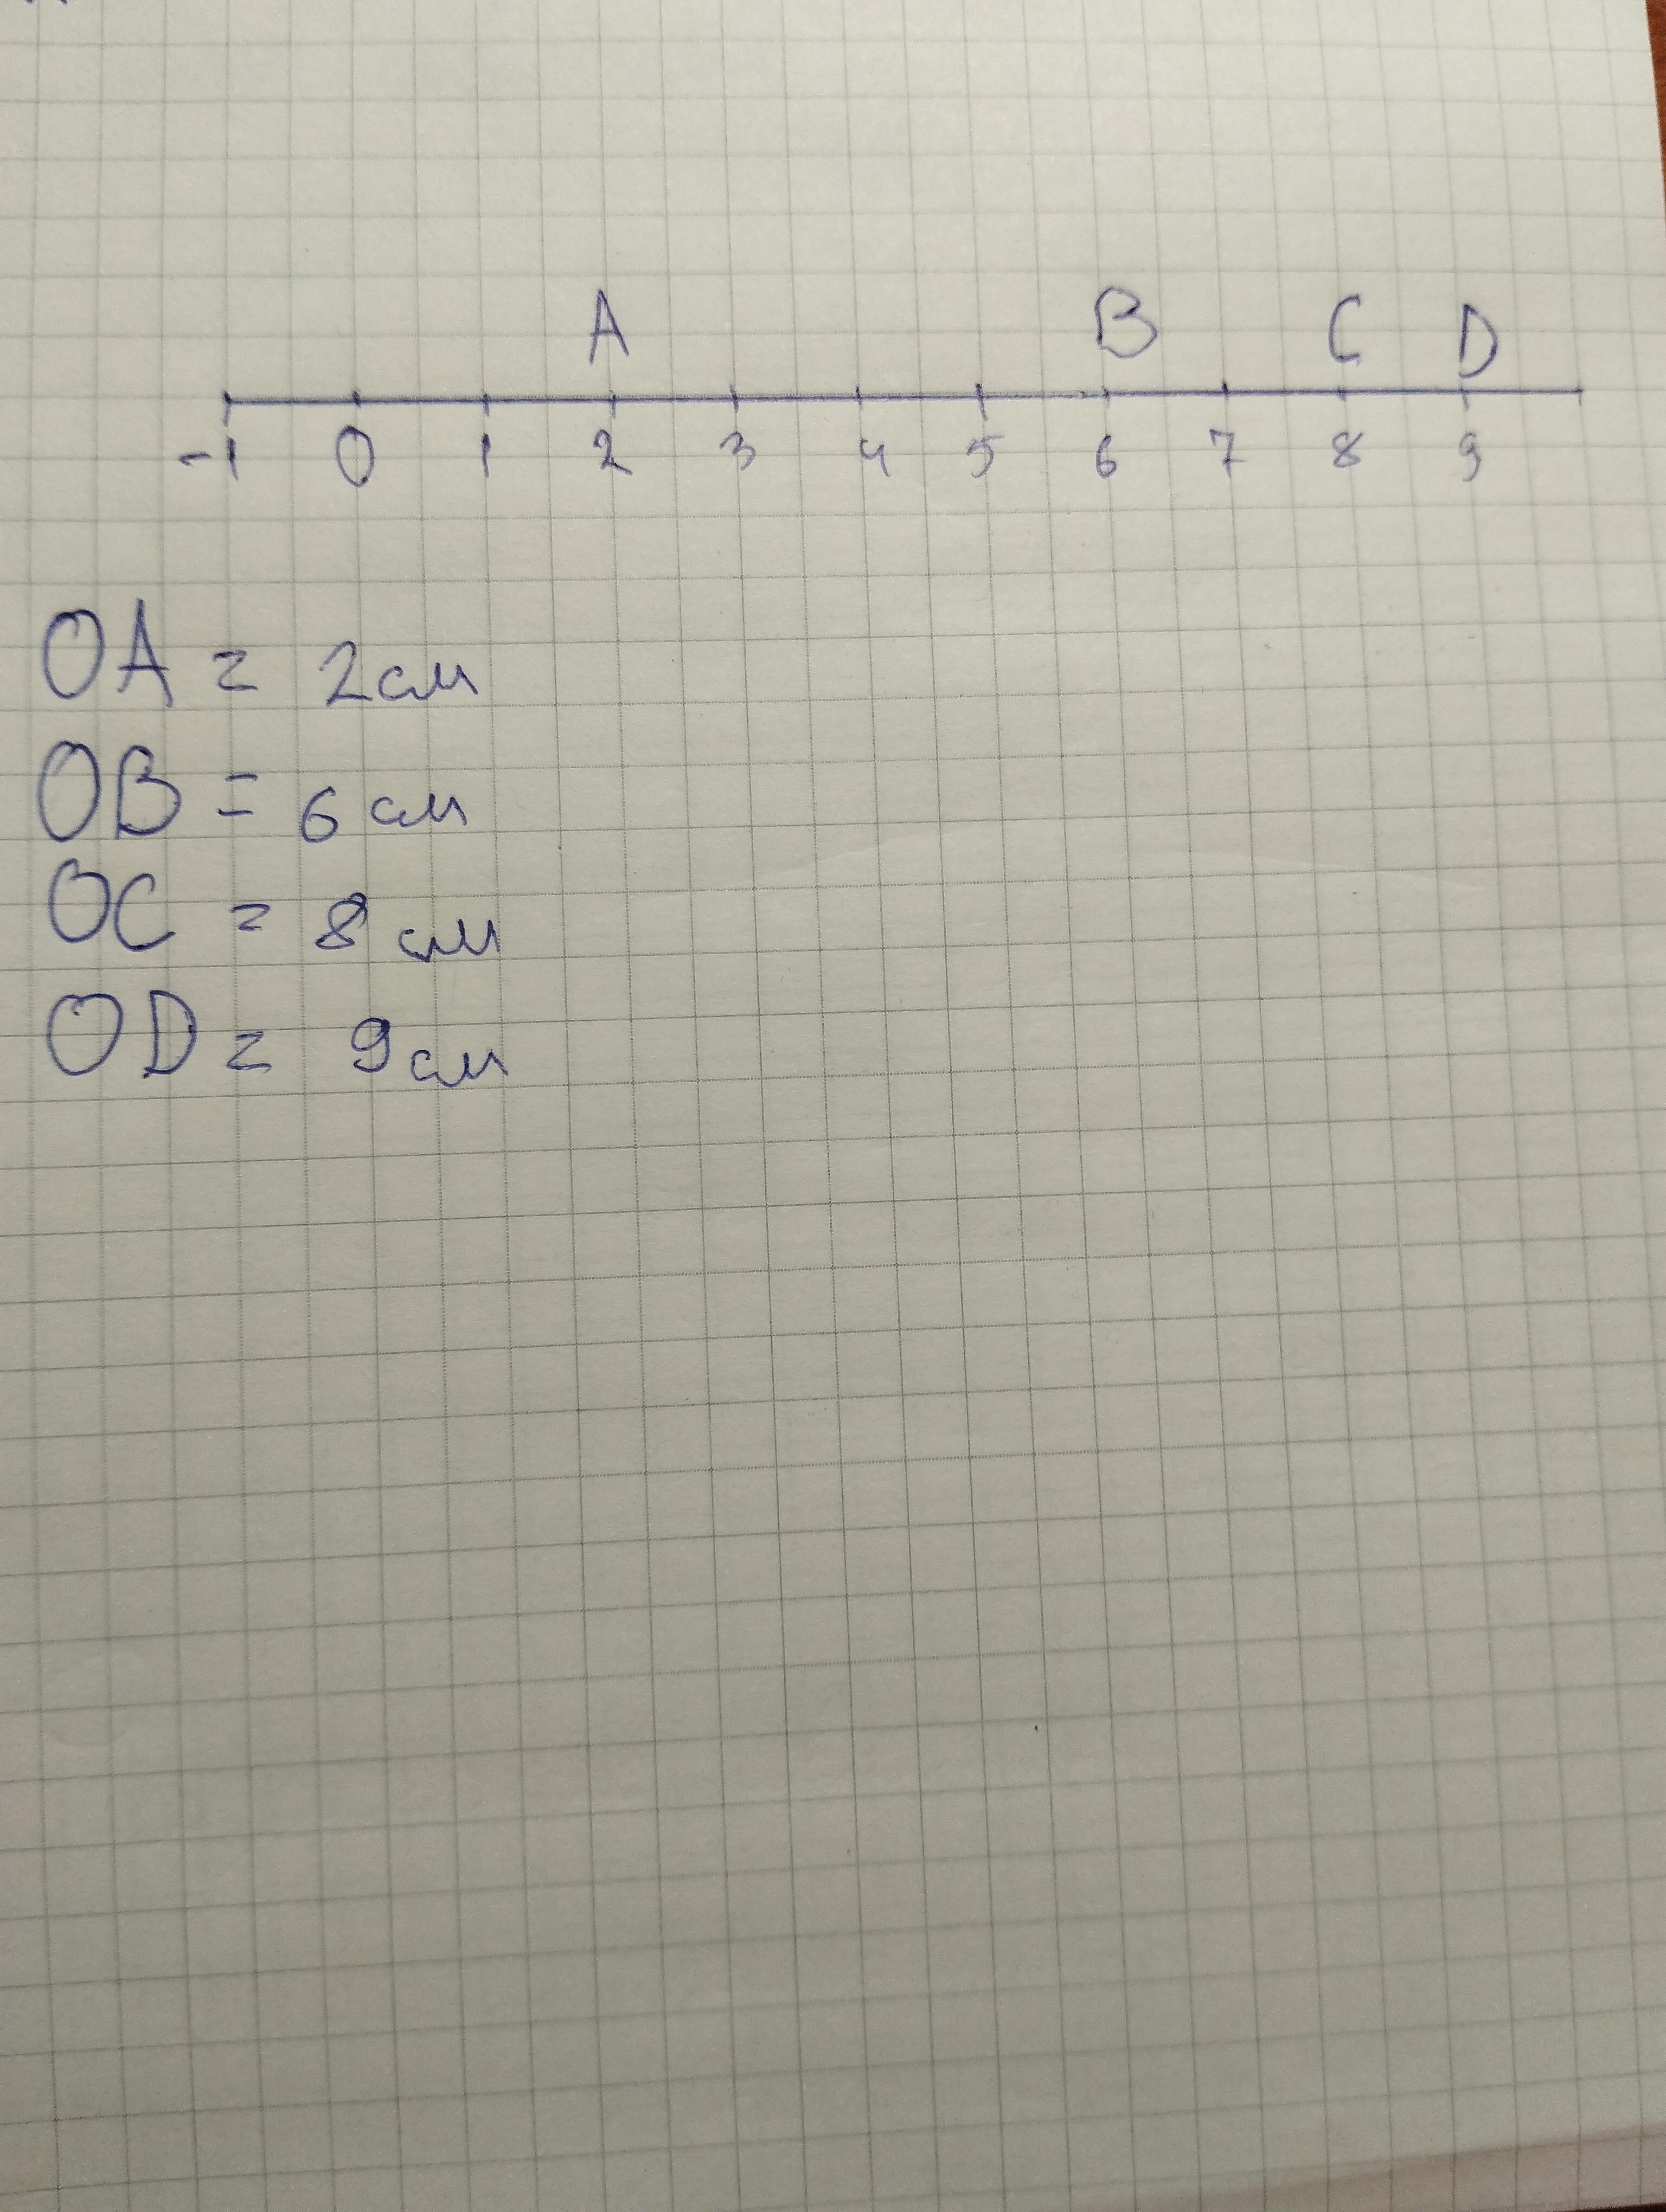 A B C D
-1 0 1 2 3 4 5 6 7 8 9
OA = 2см
OB = 6 см
OC = 8 см
OD = 9см